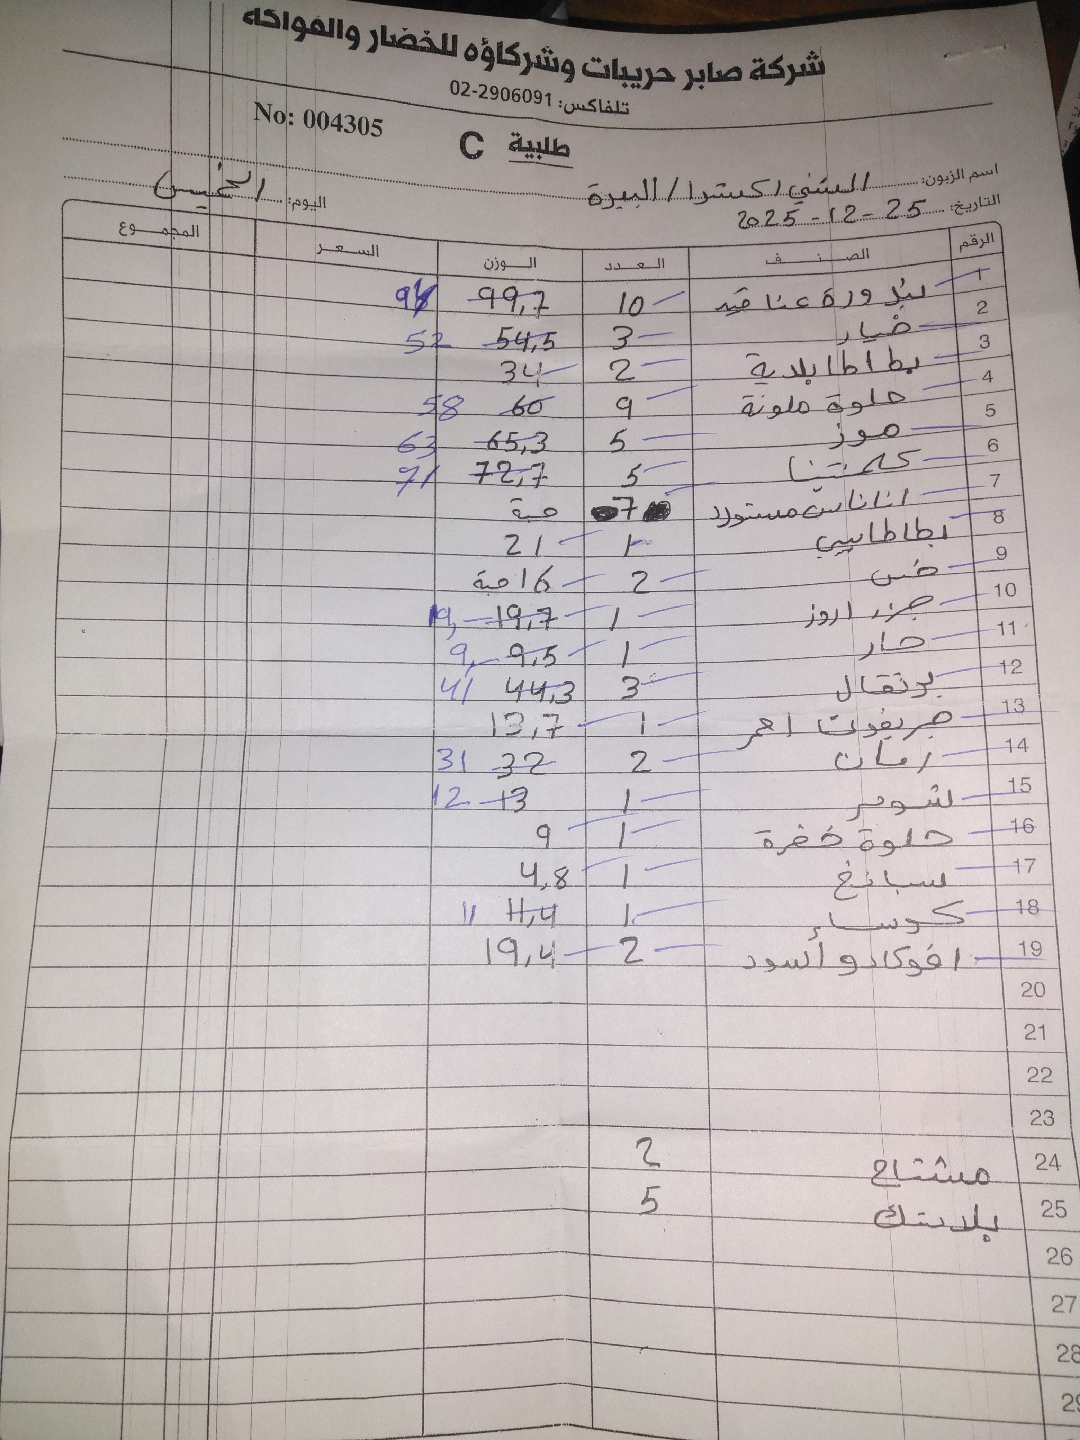 شركة صابر حريبات وشركاؤه للخضار والفواكه
تلفاكس: 02-2906091
No: 004305
طلبية C
اسم الزبون: الشني اكسترا / البيرة
التاريخ: 25-12-2025 اليوم: الخميس
الرقم الصنف العدد الوزن السعر المجموع
1 بندورة عناقيد 10 99,7
2 خيار 3 54,5 52
3 بطاطا بلدية 2 34
4 حلوة ملونة 9 60 58
5 موز 5 65,3 63
6 كلمنتينا 5 72,7 71
7 اناناس مستورد 7 حبة
8 بطاطا بيبي 1 21
9 خس 2 16 حبة
10 جزر اروز 1 19,7 19,
11 حار 1 9,5 9,
12 برتقال 3 44,3 41
13 جريفوت احمر 1 13,7
14 رمان 2 32 31
15 شومر 1 13 12
16 حلوة خضرة 1 9
17 سبانخ 1 4,8
18 كوساء 1 11,4 11
19 افوكادو أسود 2 19,4
20
21
22
23
24 مشتاح 2
25 بلاستك 5
26
27
28
29